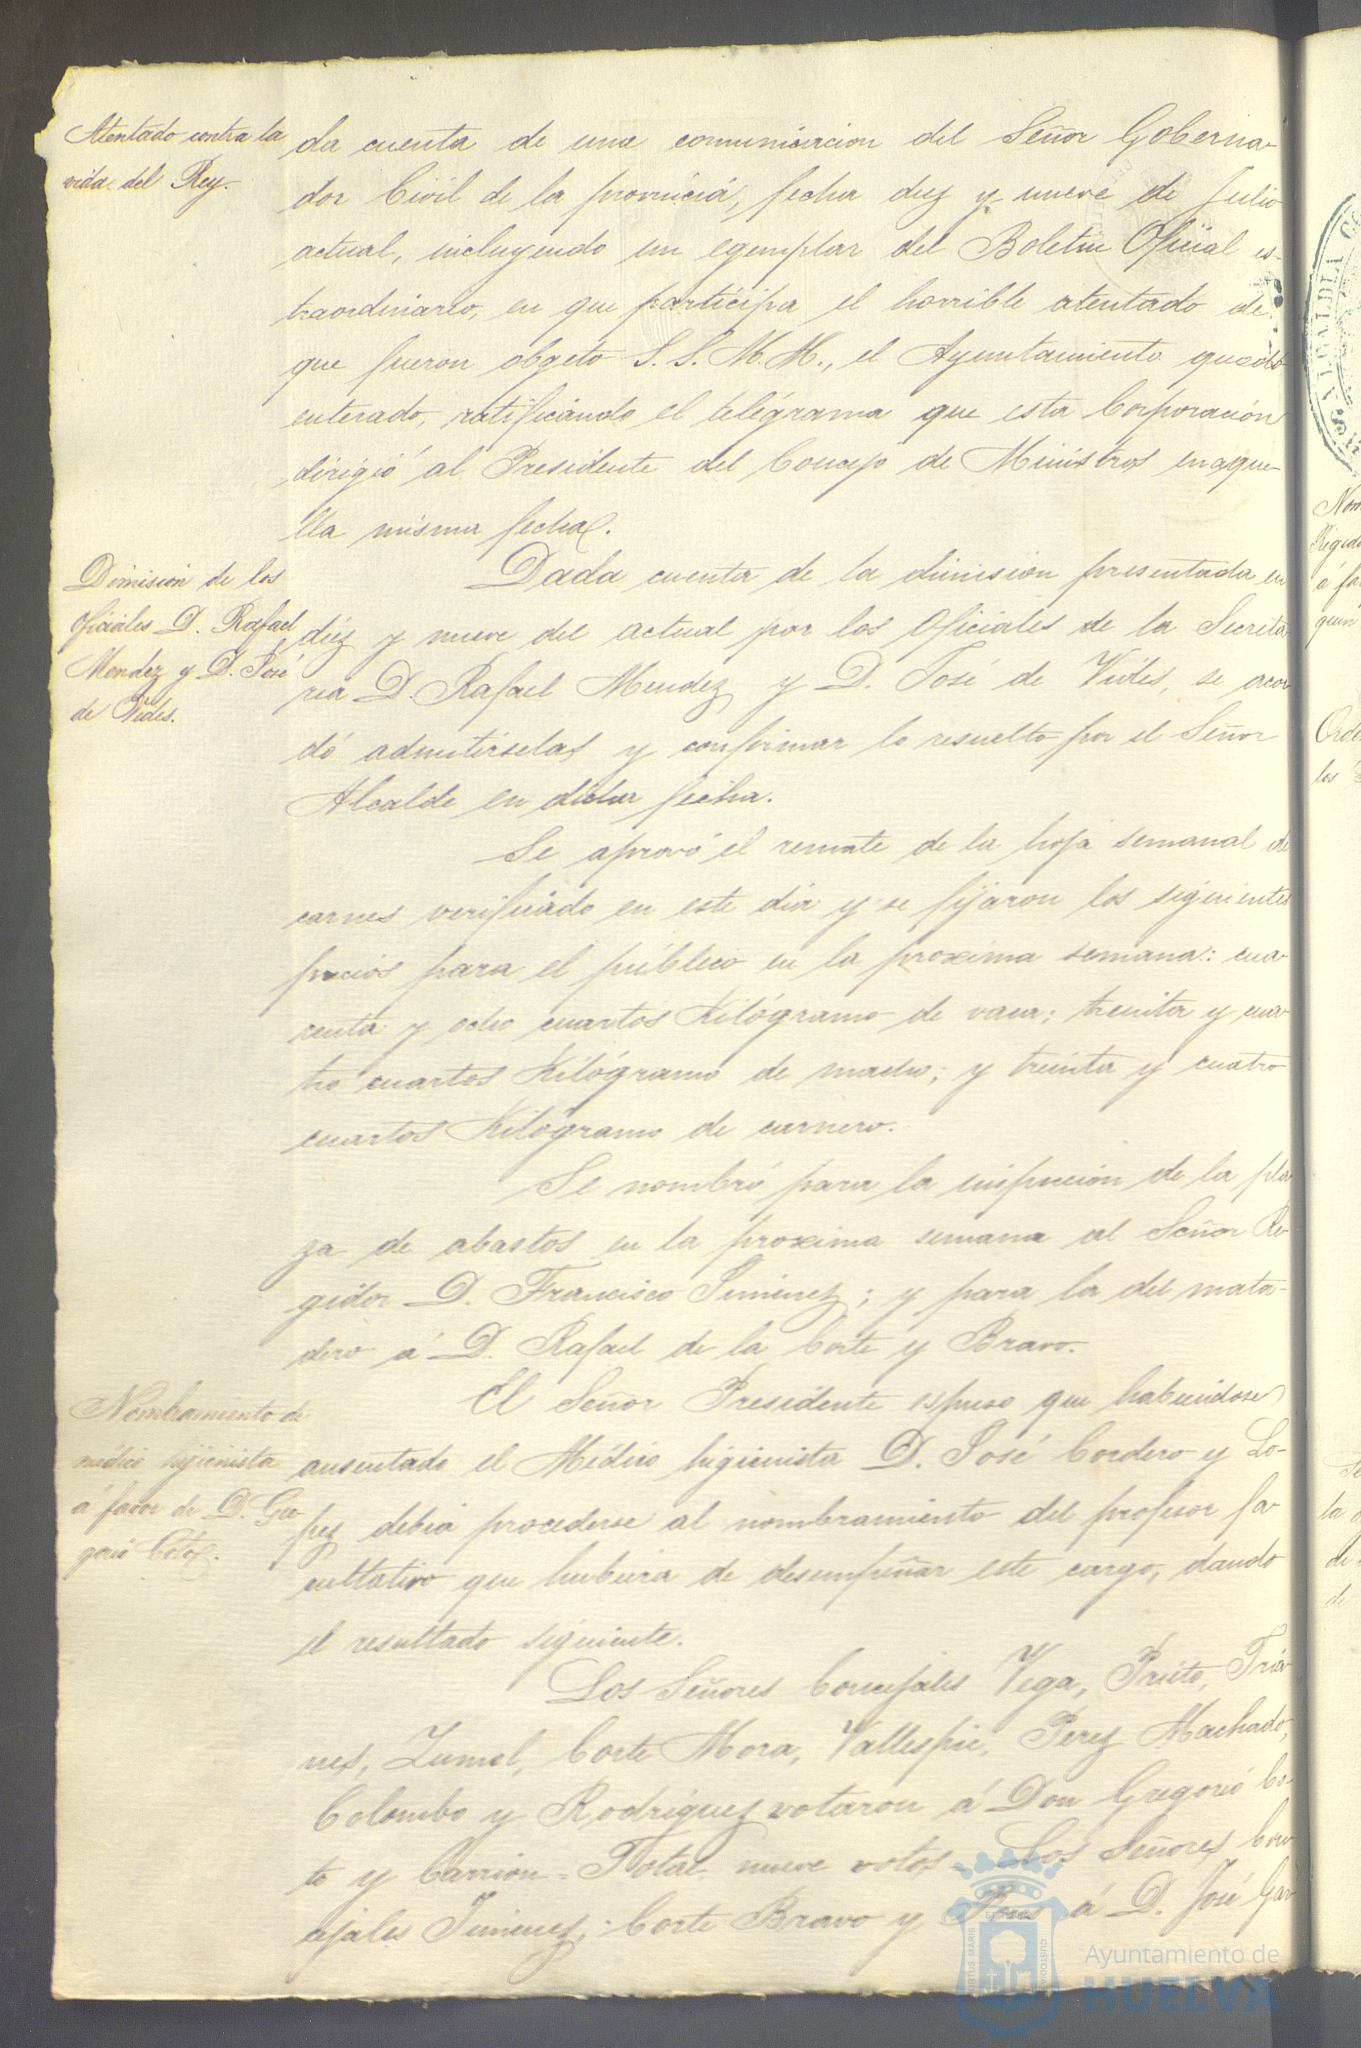 Atentado contra la
vida del Rey.
da cuenta de una comunicacion del Señor Goberna-
dor Civil de la provincia, fecha diez y nueve de Julio
actual, incluyendo un egemplar del Boletin Oficial es-
traordinario, en que participa el horrible atentado de
que fueron objeto S.S. M.M., el Ayuntamiento quedó
enterado, ratificando el telégrama que esta Corporación
dirigió al Presidente del Concejo de Ministros en aque-
lla misma fecha.
Dimision de los
Oficiales D. Rafael
Mendez y D. José
de Vides.
Dada cuenta de la dimision presentada en
diez y nueve del actual por los Oficiales de la Secreta-
ria D. Rafael Mendez y D. José de Vides, se acor-
dó admitirselas y confirmar lo resuelto por el Señor
Alcalde en dicha fecha.
Se aprovó el remate de la hoja semanal de
carnes verificado en este dia y se fijaron los siguientes
precios para el público en la proxima semana: cua-
renta y ocho cuartos Kilógramo de vaca; treinta y cua-
tro cuartos Kilógramo de macho; y treinta y cuatro
cuartos Kilógramo de carnero.
Se nombró para la inspeccion de la pla-
za de abastos en la proxima semana al Señor Re-
gidor D. Francisco Jimenez; y para la del mata-
dero á D. Rafael de la Corte y Bravo.
Nombramiento de
médico higienista
á favor de D. Gre-
gorio Coto.
El Señor Presidente espuso que habiendose
ausentado el Médico higienista D. José Cordero y Lo-
pez debia procederse al nombramiento del profesor fa-
cultativo que hubiera de desempeñar este cargo, dando
el resultado siguiente.
Los Señores Concejales Vega, Prieto, Tria-
nes, Zumel, Corte Mora, Vallespin, Perez Machado,
Colombo y Rodriguez votaron á Don Gregorio Co-
to y Carrion - Total nueve votos - Los Señores Con-
cejales Jimenez, Corte Bravo y á D. José Gar
Ayuntamiento de
HUELVA